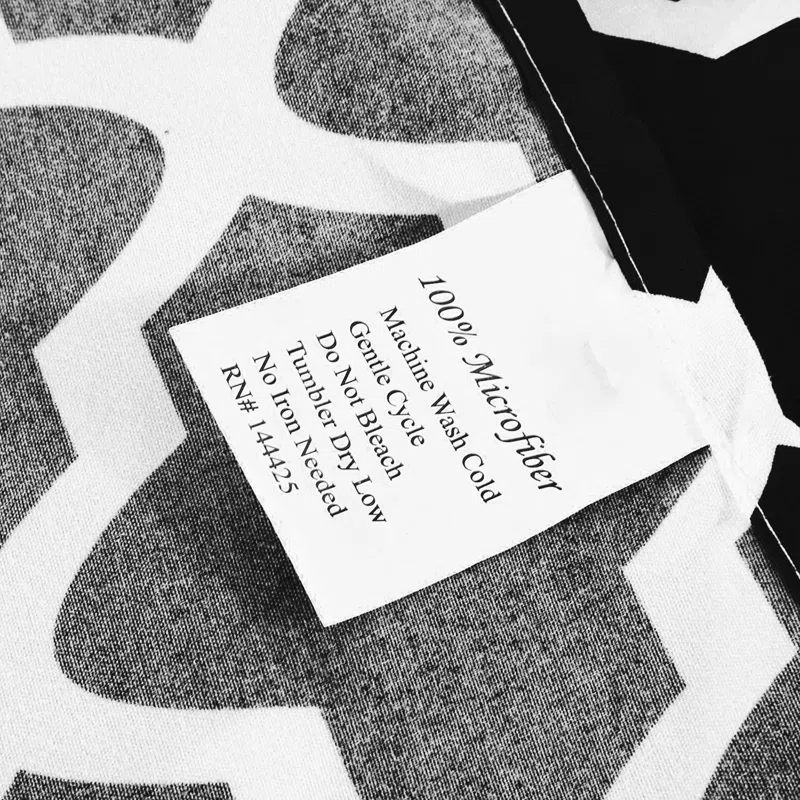 100% Microfiber
Machine Wash Cold
Gentle Cycle
Do Not Bleach
Tumbler Dry Low
No Iron Needed
RN# 144425